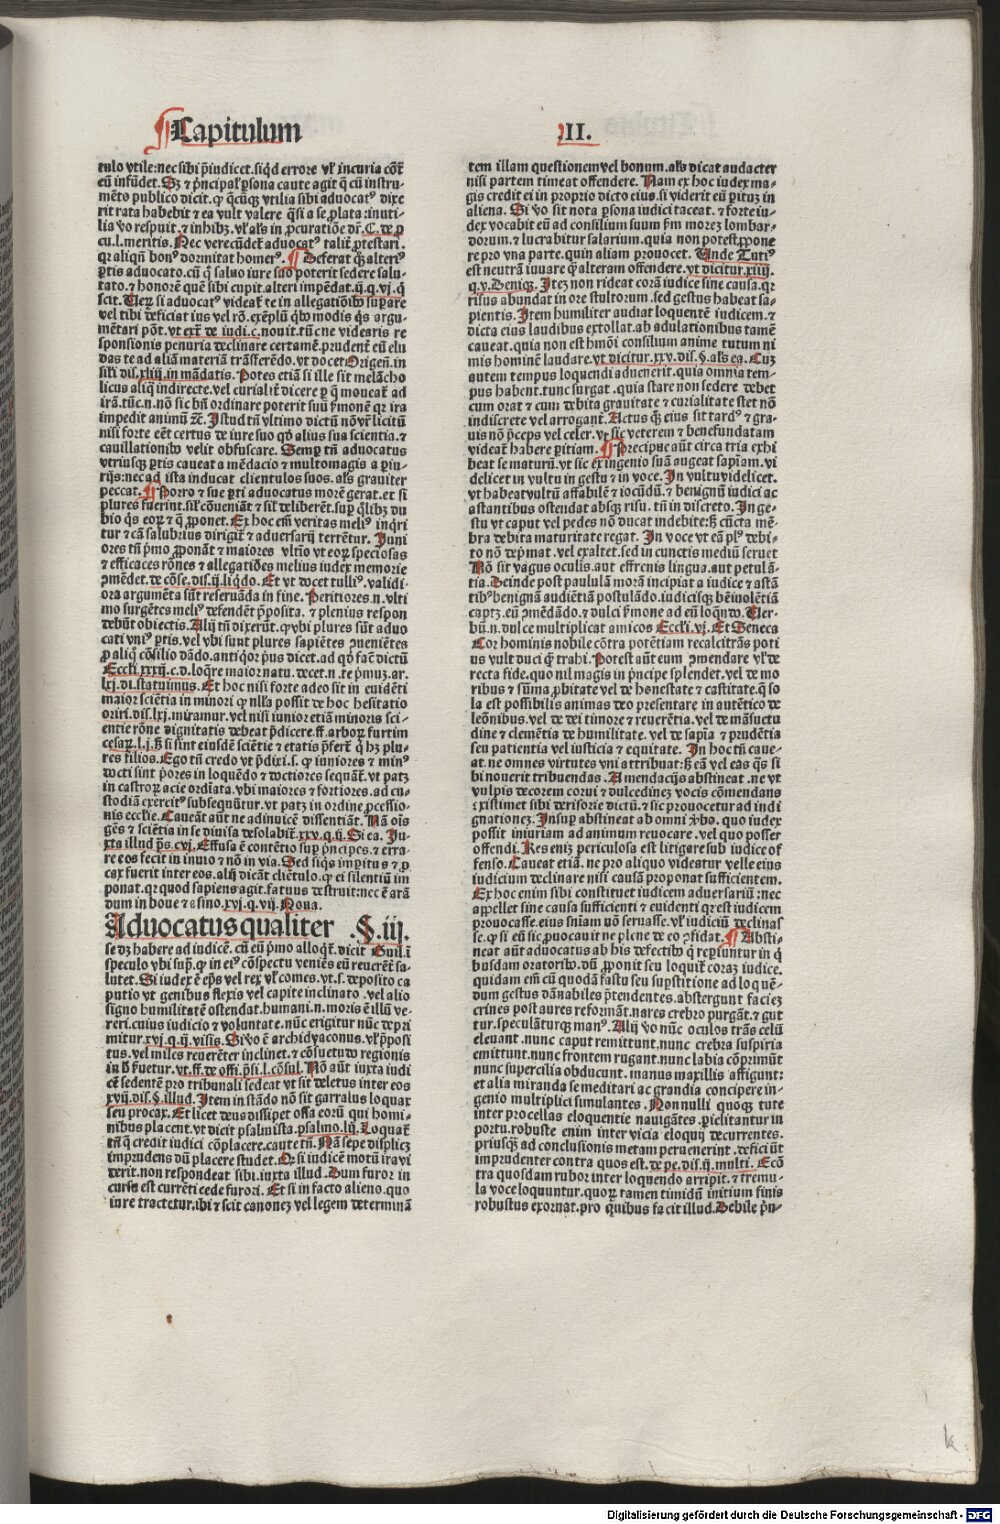 Capitulum II.
tulo vtile: nec sibi p̄iudicet. siq̄d errore vl̓ incuria cōt̄
eū infūdet. Sꝫ ⁊ p̄ncipal̓ ꝑsona caute agit q̄ cū instru-
mēto publico dicit. ꝙ q̄cūqꝫ vtilia sibi aduocatꝰ dixe
rit rata habebit ⁊ ea vult valere q̄si a se ꝓlata: inuti-
lia vo respuit. ⁊ inhibꝫ. vl̓ al̓s in ꝓcuratiōe dr̄. C. de ꝓ
cu. l. meritis. Nec verecūdet̄ aduocatꝰ talit̄ ꝓtestari.
qr aliqn̄ bonꝰ dormitat homerꝰ. Deferat qꝫ alteriꝰ
ꝑtis aduocato. cū q̄ saluo iure suo poterit sedere salu-
tato. ⁊ honorē quē sibi cupit. alteri impēdat. ij. q. vj. q̄
scit. Uerꝫ si aduocatꝰ videat̄ te in allegatiōibꝰ suꝑare
vel tibi deficiat ius vel rō. exēplū q̄bꝰ modis q̄s argu-
mētari pōt. vt ext̄. de iudi. c. nouit. tūc ne videaris re
sponsionis penuria declinare certamē. prudent̄ eū elu
das te ad aliā materiā trāsferēdo. vt docet Origen̄. in
fi. di. xliij. in mādatis. Potes etiā si ille sit melācho
licus aliq̄ indirecte. vel curialit̄ dicere ꝑ q̄ moueat̄ ad
irā. tūc. n. nō sic bn̄ ordinare poterit suū s̄monē qr ira
impedit animū ⁊c̄. Istud tn̄ vltimo dictū nō vr̄ licitū
nisi forte eēt certus de iure suo qꝙ alius sua scientia. ⁊
cauillationibꝰ velit obfuscare. Semꝑ tn̄ aduocatus
vtriusqꝫ ꝑtis caueat a mēdacio ⁊ multomagis a ꝑiu-
rijs: nec ad ista inducat clientulos suos. al̓s grauiter
peccat. Porro ⁊ sue ꝑti aduocatus morē gerat. et si
plures fuerint. sil̓ cōueniāt ⁊ sil̓ deliberēt. suꝑ q̄libꝫ du
bio q̄s eoꝝ ⁊ q̄ ꝓponet. Ex hoc em̄ veritas meliꝰ inq̄ri
tur ⁊ cā salubrius dirigit̄ ⁊ aduersarij terrētur. Iuni
ores tn̄ p̄mo ꝓponāt ⁊ maiores vltīo vt eoꝝ speciosas
⁊ efficaces rōnes ⁊ allegatiōes melius iudex memorie
ꝯmēdet. de cōse. dis. ij. liq̄do. Et vt docet tulliꝰ. validi-
ora argumēta sūt reseruāda in fine. Peritiores. n. vlti
mo surgētes meliꝰ defendēt p̄posita. ⁊ plenius respon
debūt obiectis. Alij tn̄ dixerūt. ꝙ vbi plures sūt aduo
cati vniꝰ ꝑtis. vel vbi sunt plures sapiētes ꝯueniētes
ꝓ aliq̄ cōsilio dādo. antiq̄or p̄us dicet. ad qꝙ fac̄ dictū
Eccl̓i. xxxij. c. d. loq̄re maior natu. decet. n. te p̄muꝫ. ar.
lxj. di. statuimus. Et hoc nisi forte adeo sit in euidēti
maior sciētia in minori ꝙ nll̓a possit de hoc hesitatio
oriri. dis. lxj. miramur. vel nisi iunior etiā minoris sci-
entie rōne dignitatis debeat p̄dicere. ff. arboꝝ furtim
cesaꝝ. l. j. ꝫ si sint eiusdē sciētie ⁊ etatis p̄fert̄ q̄ hꝫ plu-
res filios. Ego tn̄ credo vt p̄dixi. s. ꝙ iuniores ⁊ minꝰ
docti sint p̄ores in loquēdo ⁊ doctiores sequāt̄. vt patꝫ
in castroꝝ acie ordiata. vbi maiores ⁊ fortiores. ad cu-
stodiā exercitꝰ subsequūtur. vt patꝫ in ordine ꝓcessio-
nis ecclīe. Caueāt aūt ne adinuicē dissentiāt. Nā oīs
gēs ⁊ sciētia in se diuisa desolabit̄. xxv. q. ij. Si ea. Iu-
xta illud p̄s. cvj. Effusa ē contētio suꝑ p̄ncipes. ⁊ erra-
re eos fecit in inuio ⁊ nō in via. Sed siq̄s imꝑitus ⁊ ꝓ
cax fuerit inter eos. alij dicāt cliētulo. ꝙ ei silentiū im
ponat. qr quod sapiens agit. fatuus destruit: nec ē arā
dum in boue ⁊ asino. xvj. q. vij. Noua.
Aduocatus qualiter .§. iij.
se dꝫ habere ad iudicē. cū eū p̄mo alloq̄t̄. dicit Guil. ī
speculo vbi sup̄. ꝙ in eiꝰ cōspectu veniēs eū reuerēt̄ sa-
lutet. Si iudex ē ep̄s vel rex vl̓ comes. vt. s. deposito ca
putio vt genibus flexis vel capite inclinato. vel alio
signo humilitatē ostendat. humani. n. moris ē illū ve-
reri. cuius iudicio ⁊ voluntate. nūc erigitur nūc depri
mitur. xvj. q. ij. visis. Si vo ē archidyaconus. vl̓ p̄posi
tus. vel miles reuerēter inclinet. ⁊ cōsuetudo regionis
in ꝫ s̄uetur. vt. ff. de offi. p̄si. l. cōsul. Nō aūt iuxta iudi
cē sedentē pro tribunali sedeat vt sit deletus inter eos
xvij. dis. §. illud. Item in stādo nō sit garralus loquax
seu procax. Et licet deus dissipet ossa eorū qui homi-
nibus placent. vt dicit psalmista. psalmo. lij. Loquat̄
tn̄ q̄ credit iudici cōplacere. caute tn̄. Nā sepe displicꝫ
imprudens dū placere studet. Or̄ si iudicē motū ira vi
derit. non respondeat sibi. iuxta illud. Dum furor in
cursu est currēti cede furori. Et si in facto alieno. quo
iure tractetur. ibi ⁊ scit canoneꝫ vel legem determinā
tem illam questionem vel bonum. al̓s dicat audacter
nisi partem timeat offendere. Nam ex hoc iudex ma-
gis credit ei in proprio dicto eius. si viderit eū ꝑituꝫ in
aliena. Si vo sit nota ꝑsona iudici taceat. ⁊ forte iu-
dex vocabit eū ad consilium suum s̄m morez lombar-
dorum. ⁊ lucrabitur salarium. quia non potest ꝓpone
re pro vna parte. quin aliam prouocet. Unde Tutiꝰ
est neutrā iuuare q̄ alteram offendere. vt dicitur. xiiij.
q. v. Deniqꝫ. Iteꝫ non rideat corā iudice sine causa. qr
risus abundat in ore stultorum. sed gestus habeat sa-
pientis. Item humiliter audiat loquentē iudicem. ⁊
dicta eius laudibus extollat. ab adulationibus tamē
caueat. quia non est hmōi consilium anime tutum ni
mis hominē laudare. vt dicitur. xxv. dis. §. al̓s ea. Cuꝫ
autem tempus loquendi aduenerit. quia omnia tem-
pus habent. tunc surgat. quia stare non sedere debet
cum orat ⁊ cum debita grauitate ⁊ curialitate stet nō
indiscrete vel arrogant̄. Actus qꝫ eius sit tardꝰ ⁊ gra-
uis nō p̄ceps vel celer. vt sic veterem ⁊ benefundatam
videat̄ habere ꝑitiam. Precipue aūt circa tria exhi
beat se maturū. vt sic ex ingenio suā augeat sapīam. vi
delicet in vultu in gestu ⁊ in voce. In vultu videlicet.
vt habeat vultū affabilē ⁊ iocūdū. ⁊ benignū iudici ac
astantibus ostendat absqꝫ risu. tn̄ in discreto. In ge-
stu vt caput vel pedes nō ducat indebite: ꝫ cūcta mē-
bra debita maturitate regat. In voce vt eā plꝰ debi-
to nō dep̄mat. vel exaltet. sed in cunctis mediū seruet
Nō sit vagus oculis. aut effrenis lingua. aut petulā-
tia. Deinde post paululā morā incipiat a iudice ⁊ astā
tibꝰ benignā audiētiā postulādo. iudicisqꝫ beniuolētiā
captꝫ. eū ꝯmēdādo. ⁊ dulci s̄mone ad eū loq̄ndo. Uer-
bū. n. dulce multiplicat amicos Eccl̓i. vj. Et Seneca
Cor hominis nobile cōtra potētiam recalcitrās poti
us vult duci q̄ trahi. Potest aūt eum ꝯmendare vl̓ de
recta fide. quo nil magis in p̄ncipe splendet. vel de mo
ribus ⁊ sūma ꝓbitate vel de honestate ⁊ castitate. q̄ so
la est possibilis animas deo presentare in autētico de
leōnibus. vel de dei timore ⁊ reuerētia. vel de māsuetu
dine ⁊ clemētia de humilitate. vel de sapīa ⁊ prudētia
seu patientia vel iusticia ⁊ equitate. In hoc tn̄ caue-
at. ne omnes virtutes vni attribuat: ꝫ eā vel eas q̄s si
bi nouerit tribuendas. A mendacijs abstineat. ne vt
vulpis decorem corui ⁊ dulcedineꝫ vocis cōmendans
existimet sibi derisorie dictū. ⁊ sic prouocetur ad indi
gnationeꝫ. Insuꝑ abstineat ab omni v̓bo. quo iudex
possit iniuriam ad animum reuocare. vel quo posser
offendi. Res eniꝫ periculosa est litigare sub iudice of
fenso. Caueat etiā. ne pro aliquo videatur velle eius
iudicium declinare nisi causā proponat sufficientem.
Ex hoc enim sibi constituet iudicem aduersariū: nec
appellet sine causa sufficienti ⁊ euidenti qr est iudicem
prouocasse. eius sniam nō seruasse. vl̓ iudiciū declinas
se. ꝙ si eū sic ꝓuocauit ne plene de eo ꝯfidat. Absti-
neat aūt aduocatus ab his defectibꝰ q̄ reꝑiuntur in q̄
busdam oratoribꝰ. dū ꝓponit seu loquit̄ coraꝫ iudice.
quidam em̄ cū quodā fastu seu suꝑstitione ad loquē-
dum gestus dānabiles p̄tendentes. abstergunt facieꝫ
crines post aures reformāt. nares crebro purgāt. ⁊ gut
tur. speculāturqꝫ manꝰ. Alij vo nūc oculos trās celū
eleuant. nunc caput remittunt. nunc crebra suspiria
emittunt. nunc frontem rugant. nunc labia cōprimūt
nunc supercilia obducunt. manus maxillis affigunt:
et alia miranda se meditari ac grandia concipere in-
genio multiplici simulantes. Nonnulli quoqꝫ tute
inter procellas eloquentie nauigātes. ꝑiclitantur in
portu. robuste enim inter vicia eloquij decurrentes.
priusqꝫ ad conclusionis metam peruenerint. defici ūt
imprudenter contra quos est. de pe. dis. ij. multi. Ecō
tra quosdam rubor inter loquendo arripit. ⁊ tremu-
la voce loquuntur. quoꝝ tamen timidū initium finis
robustus exornat. pro quibus facit illud. Debile p̄n-
k
Digitalisierung gefördert durch die Deutsche Forschungsgemeinschaft - DFG